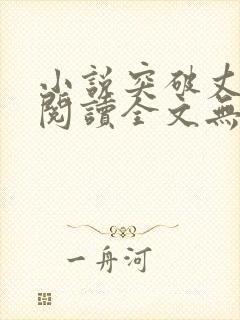 小說突破丈
閱讀全文無
一舟河